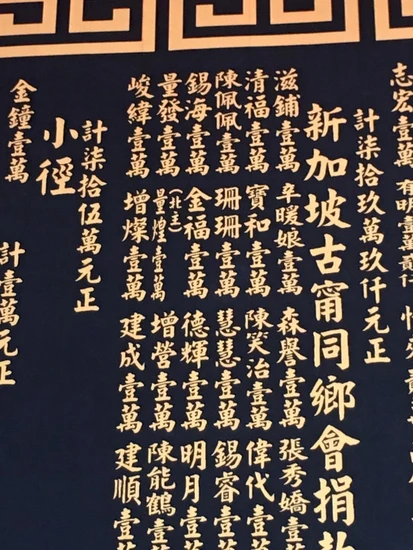 志宏壹萬
計柒拾玖萬玖仟元正
新加坡古甯同鄉會捐款
滋鋪壹萬 辛暖娘壹萬 森譽壹萬 張秀嬌壹
清福壹萬 寶和壹萬 陳笑治壹萬 偉代壹萬
陳佩佩壹萬 珊珊壹萬 慧慧壹萬 錫睿壹萬
錫海壹萬 金福壹萬 德輝壹萬 明月壹萬
量發壹萬 量煌壹萬(北主) 增營壹萬 陳能鶴壹
峻緯壹萬 增燦壹萬 建成壹萬 建順壹萬
計柒拾伍萬元正
小徑
金鐘壹萬 計壹萬元正